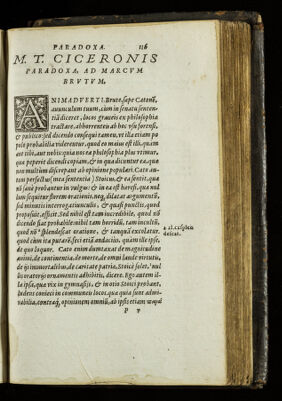 PARADOXA. 116
M. T. CICERONIS
PARADOXA, AD MARCVM
BRVTVM.
ANIMADVERTI, Brute, sæpe Catonē,
auunculum tuum, cum in senatu senten-
tiā diceret, locos graueis ex philosophia
tractare, abhorrenteis ab hoc vsu forensi,
& publico: sed dicendo consequi tamen, vt illa etiam po-
pulo probabilia viderentur. quod eo maius est illi, quàm
aut tibi, aut nobis: quia nos ea philosophia plus vtimur,
quæ peperit dicendi copiam, & in qua dicuntur ea, quæ
non multum discrepant ab opinione populari. Cato au-
tem perfectus (mea sententia) Stoicus, & ea sentit, quæ
nō sanè probantur in vulgus: & in ea est hæresi, quæ nul-
lum sequitur florem orationis. neq; dilatat argumentū,
sed minutis interrogatiunculis, & quasi punctis, quod
proposuit, efficit. Sed nihil est tam incredibile, quod nō
dicendo fiat probabile: nihil tam horridū, tam incultū,
quod nō splendescat oratione, & tanquā excolatur.
quod cùm ita putarē, feci etiā audacius, quàm ille ipse,
de quo loquor. Cato enim duntaxat de magnitudine
animi, de continentia, de morte, de omni laude virtutis,
de dijs immortalibus, de caritate patriæ, Stoicè solet,
oratorijs ornamentis adhibitis, dicere. Ego autem il-
la ipsa, quæ vix in gymnasijs, & in otio Stoici probant,
ludens conieci in communeis locos. quæ quia sunt admi-
rabilia, contraq; opinionem omniū, ab ipsis etiam
P